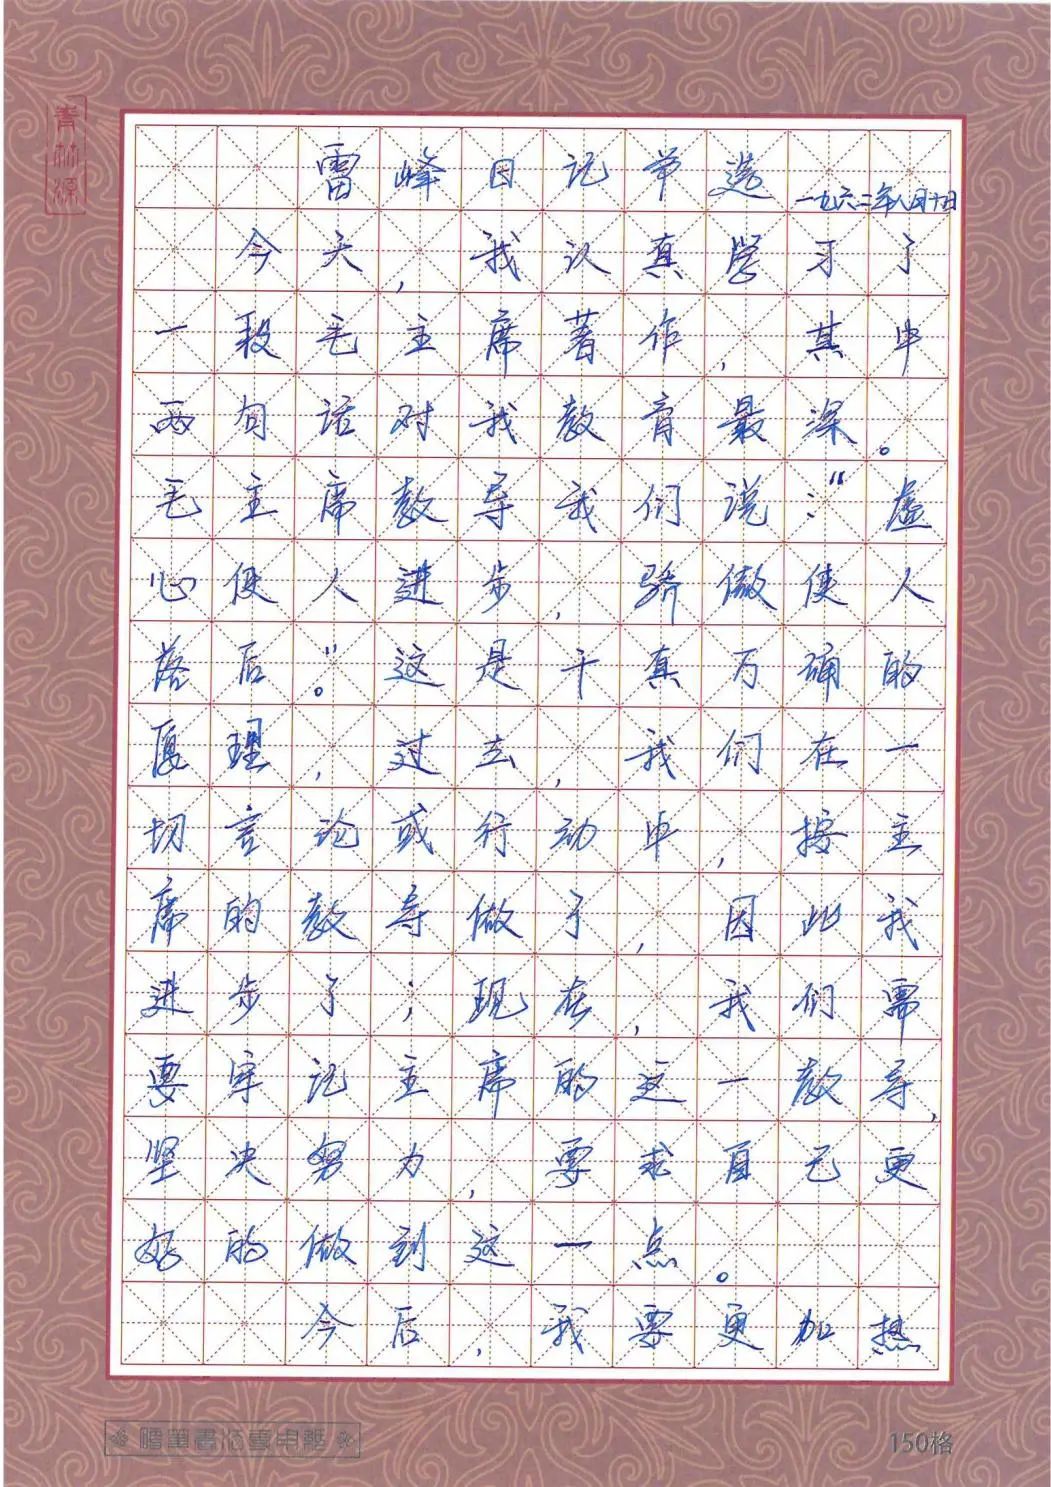 青林源
雷峰日记节选
一九六二年八月十日
今天，我认真学习了
一段毛主席著作，其中
两句话对我教育最深。
毛主席教导我们说："虚
心使人进步，骄傲使人
落后。"这是千真万确的
真理，过去，我们在一
切言论或行动中，按主
席的教导做了，因此我
进步了；现在，我们需
要牢记主席的这一教导，
坚决努力，要求自己更
好的做到这一点。
今后，我要更加热
硬笔书法专用纸
150格